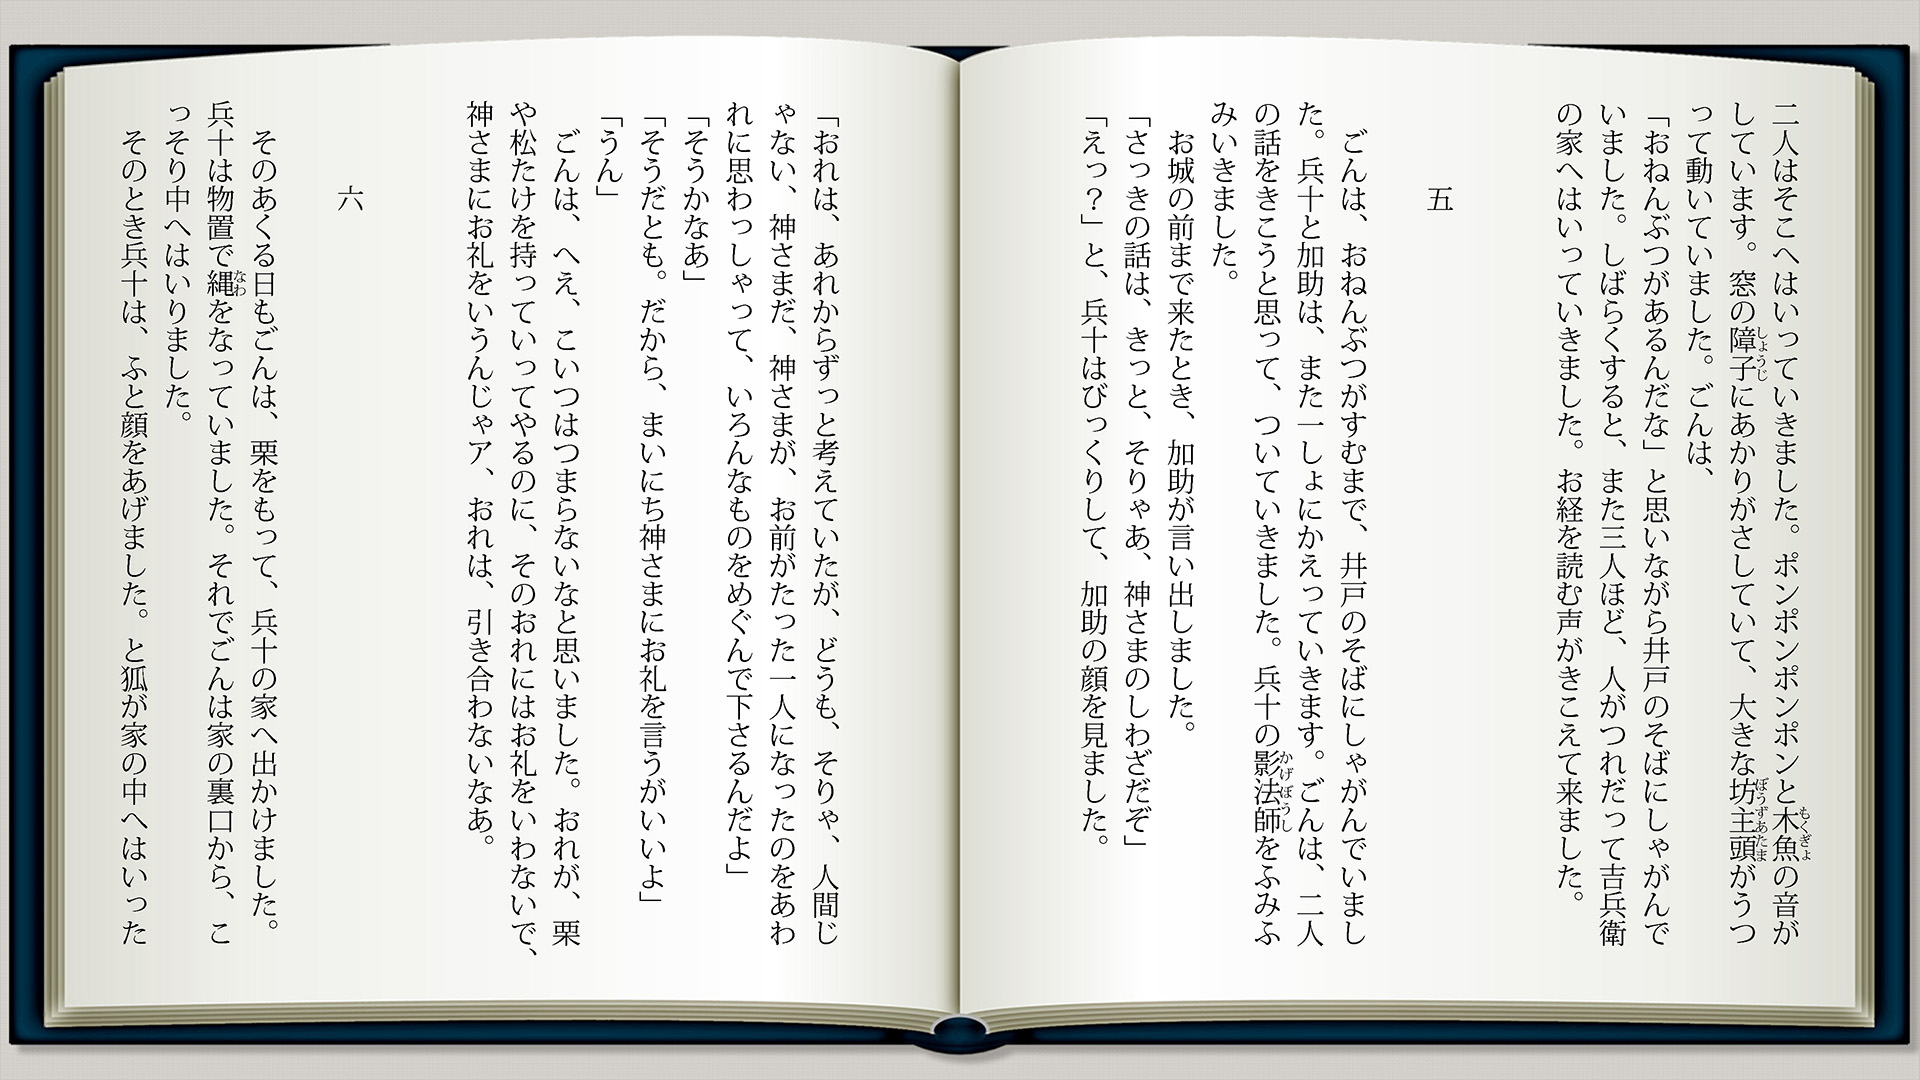 二人はそこへはいっていきました。ポンポンポンポンと木魚の音が
しています。窓の障子にあかりがさしていて、大きな坊主頭がうつ
って動いていました。ごんは、
「おねんぶつがあるんだな」と思いながら井戸のそばにしゃがんで
いました。しばらくすると、また三人ほど、人がつれだって吉兵衛
の家へはいっていきました。お経を読む声がきこえて来ました。
五
ごんは、おねんぶつがすむまで、井戸のそばにしゃがんでいまし
た。兵十と加助は、また一しょにかえっていきます。ごんは、二人
の話をきこうと思って、ついていきました。兵十の影法師をふみふ
みいきました。
お城の前まで来たとき、加助が言い出しました。
「さっきの話は、きっと、そりゃあ、神さまのしわざだぞ」
「えっ？」と、兵十はびっくりして、加助の顔を見ました。
「おれは、あれからずっと考えていたが、どうも、そりゃ、人間じ
ゃない、神さまだ、神さまが、お前がたった一人になったのをあわ
れに思わっしゃって、いろんなものをめぐんで下さるんだよ」
「そうかなあ」
「そうだとも。だから、まいにち神さまにお礼を言うがいいよ」
「うん」
ごんは、へえ、こいつはつまらないなと思いました。おれが、栗
や松たけを持っていってやるのに、そのおれにはお礼をいわないで、
神さまにお礼をいうんじゃア、おれは、引き合わないなあ。
六
そのあくる日もごんは、栗をもって、兵十の家へ出かけました。
兵十は物置で縄をなっていました。それでごんは家の裏口から、こ
っそり中へはいりました。
そのとき兵十は、ふと顔をあげました。と狐が家の中へはいった